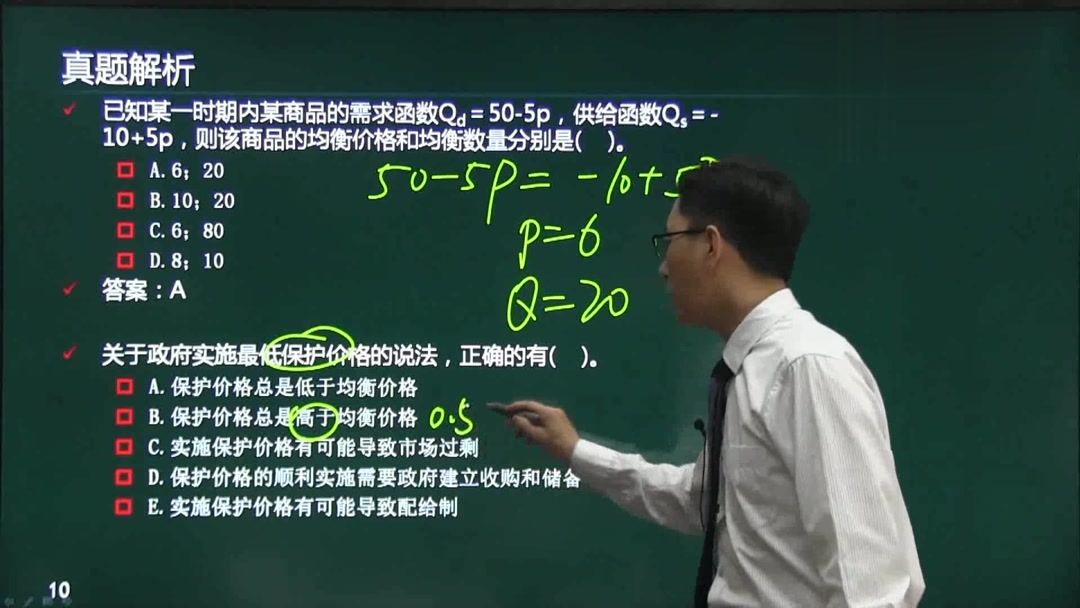 真题解析
已知某一时期内某商品的需求函数Qd＝50-5p，供给函数Qs＝-
10+5p，则该商品的均衡价格和均衡数量分别是(    )。
A. 6；20
50-5P=-10+5
B. 10；20
C. 6；80
P=6
D. 8；10
答案：A
Q=20
关于政府实施最低保护价格的说法，正确的有(    )。
A. 保护价格总是低于均衡价格
B. 保护价格总是高于均衡价格 0.5
C. 实施保护价格有可能导致市场过剩
D. 保护价格的顺利实施需要政府建立收购和储备
E. 实施保护价格有可能导致配给制
10